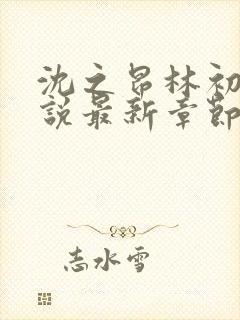 沈之昂林初
說最新章節
志水雪